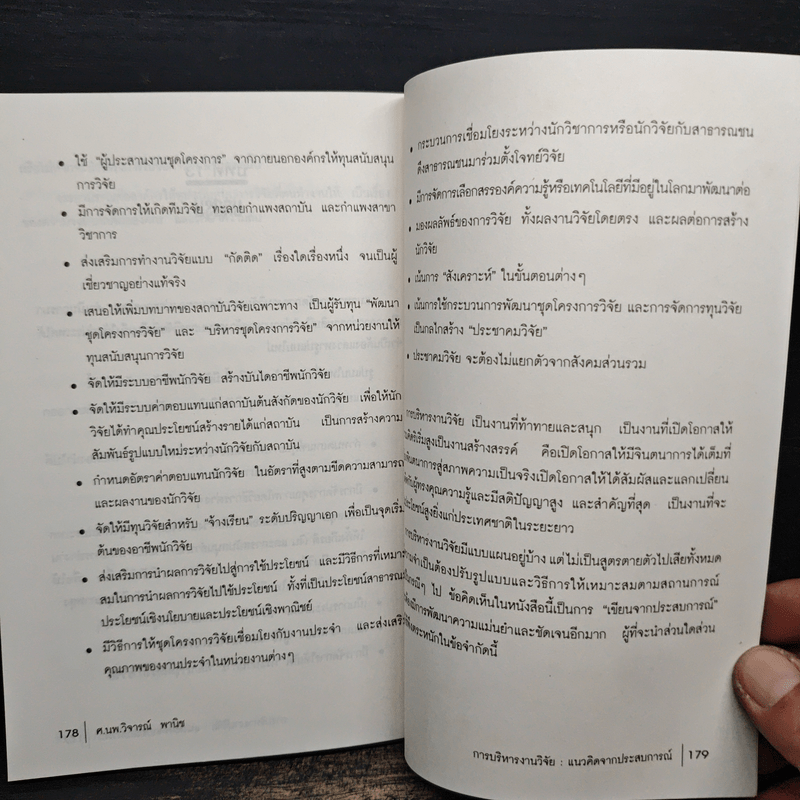 • ใช้ “ผู้ประสานงานชุดโครงการ” จากภายนอกองค์กรให้ทุนสนับสนุน
การวิจัย
• มีการจัดการให้เกิดทีมวิจัย ทะลายกำแพงสถาบัน และกำแพงสาขา
วิชาการ
• ส่งเสริมการทำงานวิจัยแบบ “กัดติด” เรื่องใดเรื่องหนึ่ง จนเป็นผู้
เชี่ยวชาญอย่างแท้จริง
• เสนอให้เพิ่มบทบาทของสถาบันวิจัยเฉพาะทาง เป็นผู้รับทุน “พัฒนา
ชุดโครงการวิจัย” และ “บริหารชุดโครงการวิจัย” จากหน่วยงานให้
ทุนสนับสนุนการวิจัย
• จัดให้มีระบบอาชีพนักวิจัย สร้างบันไดอาชีพนักวิจัย
• จัดให้มีระบบค่าตอบแทนแก่สถาบันต้นสังกัดของนักวิจัย เพื่อให้นัก
วิจัยได้ทำคุณประโยชน์สร้างรายได้แก่สถาบัน เป็นการสร้างความ
สัมพันธ์รูปแบบใหม่ระหว่างนักวิจัยกับสถาบัน
• กำหนดอัตราค่าตอบแทนนักวิจัย ในอัตราที่สูงตามขีดความสามารถ
และผลงานของนักวิจัย
• จัดให้มีทุนวิจัยสำหรับ “จ้างเรียน” ระดับปริญญาเอก เพื่อเป็นจุดเริ่ม
ต้นของอาชีพนักวิจัย
• ส่งเสริมการนำผลการวิจัยไปสู่การใช้ประโยชน์ และมีวิธีการที่เหมาะ
สมในการนำผลการวิจัยไปใช้ประโยชน์ ทั้งที่เป็นประโยชน์สาธารณะ
ประโยชน์เชิงนโยบายและประโยชน์เชิงพาณิชย์
• มีวิธีการให้ชุดโครงการวิจัยเชื่อมโยงกับงานประจำ และส่งเสริม
คุณภาพของงานประจำในหน่วยงานต่างๆ
178 | ศ.นพ.วิจารณ์ พานิช
• กระบวนการเชื่อมโยงระหว่างนักวิชาการหรือนักวิจัยกับสาธารณชน
ดึงสาธารณชนมาร่วมตั้งโจทย์วิจัย
• มีการจัดการเลือกสรรองค์ความรู้หรือเทคโนโลยีที่มีอยู่ในโลกมาพัฒนาต่อ
• มองผลลัพธ์ของการวิจัย ทั้งผลงานวิจัยโดยตรง และผลต่อการสร้าง
นักวิจัย
• เน้นการ “สังเคราะห์” ในขั้นตอนต่างๆ
• เน้นการใช้กระบวนการพัฒนาชุดโครงการวิจัย และการจัดการทุนวิจัย
เป็นกลไกสร้าง “ประชาคมวิจัย”
• ประชาคมวิจัย จะต้องไม่แยกตัวจากสังคมส่วนรวม
การบริหารงานวิจัย เป็นงานที่ท้าทายและสนุก เป็นงานที่เปิดโอกาสให้
เป็นงานสร้างสรรค์ คือเปิดโอกาสให้มีจินตนาการได้เต็มที่
การสู่สภาพความเป็นจริงเปิดโอกาสให้ได้สัมผัสและแลกเปลี่ยน
กับผู้ทรงคุณความรู้และมีสติปัญญาสูง และสำคัญที่สุด เป็นงานที่จะ
ประโยชน์สูงยิ่งแก่ประเทศชาติในระยะยาว
การบริหารงานวิจัยมีแบบแผนอยู่บ้าง แต่ไม่เป็นสูตรตายตัวไปเสียทั้งหมด
จำเป็นต้องปรับรูปแบบและวิธีการให้เหมาะสมตามสถานการณ์
ไป ข้อคิดเห็นในหนังสือนี้เป็นการ “เขียนจากประสบการณ์”
มีการพัฒนาความแม่นยำและชัดเจนอีกมาก ผู้ที่จะนำส่วนใดส่วน
ตระหนักในข้อจำกัดนี้
การบริหารงานวิจัย : แนวคิดจากประสบการณ์ | 179